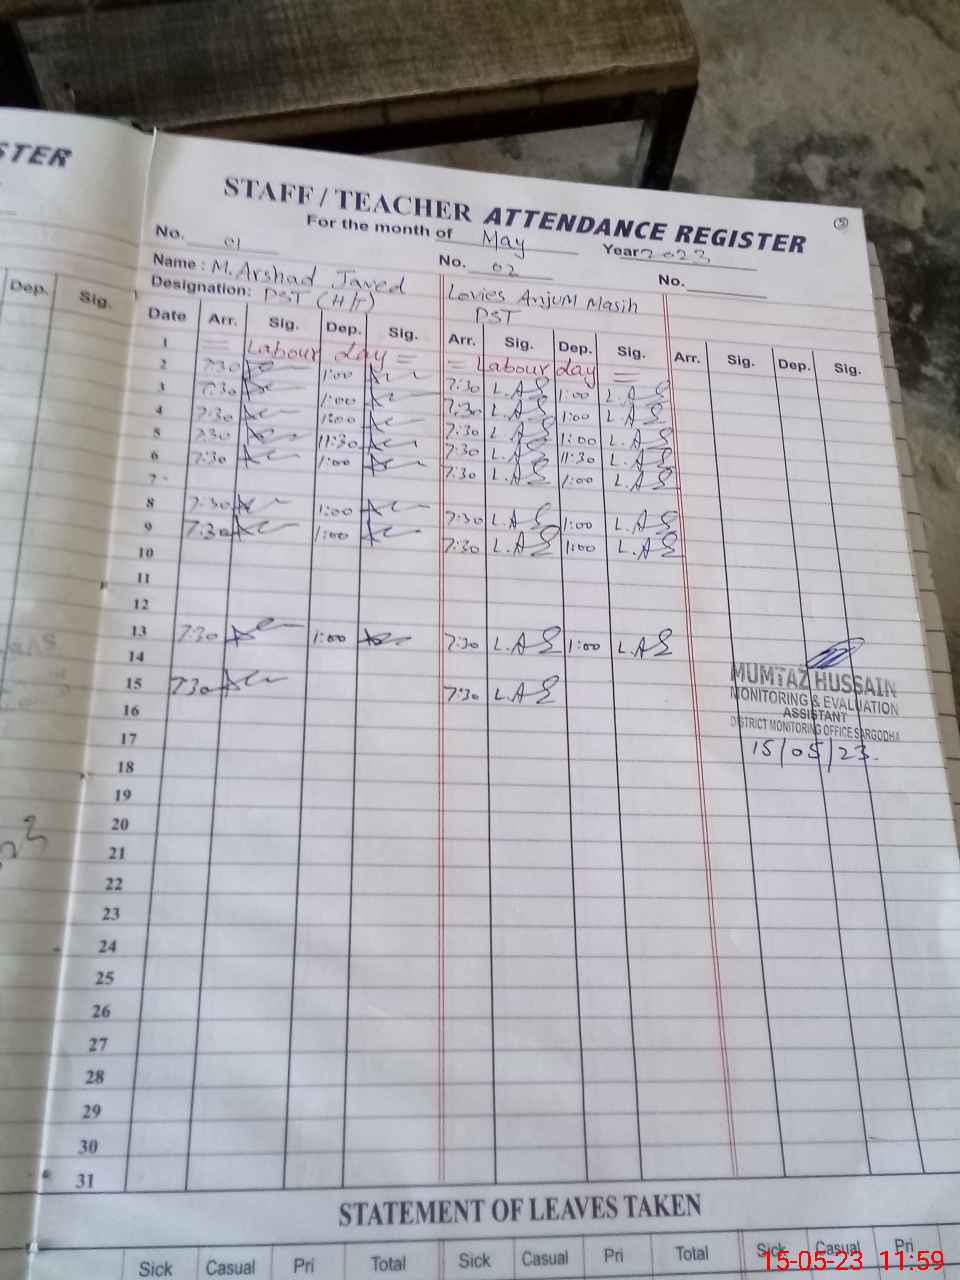 STER
STAFF / TEACHER ATTENDANCE REGISTER
For the month of May Year 2023
No. 01 No. 02 No.
Name : M. Arshad Javed Lovies Anjum Masih
Designation: PST (H/T) PST
Dep. Sig.
Date Arr. Sig. Dep. Sig. Arr. Sig. Dep. Sig. Arr. Sig. Dep. Sig.
1 = Labour day = = Labour day =
2 7:30 1:00 7:30 L.AS 1:00 L.AS
3 7:30 1:00 7:30 L.AS 1:00 L.AS
4 7:30 1:00 7:30 L.AS 1:00 L.AS
5 7:30 11:30 7:30 L.AS 11:30 L.AS
6 7:30 1:00 7:30 L.AS 1:00 L.AS
7
8 7:30 1:00 7:30 L.AS 1:00 L.AS
9 7:30 1:00 7:30 L.AS 1:00 L.AS
10
11
12
13 7:30 1:00 7:30 L.AS 1:00 L.AS
14
15 7:30 7:30 L.AS
16
17
18
19
20
21
22
23
24
25
26
27
28
29
30
31
MUMTAZ HUSSAIN
MONITORING & EVALUATION
ASSISTANT
DISTRICT MONITORING OFFICE SARGODHA
15/05/23.
STATEMENT OF LEAVES TAKEN
Sick Casual Pri Total Sick Casual Pri Total Sick Casual Pri
15-05-23 11:59